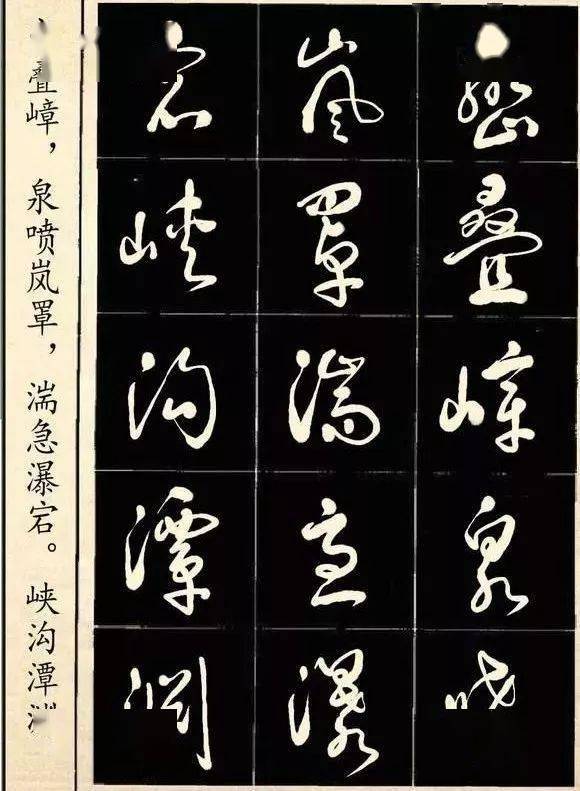 叠嶂泉
岚罩湍急瀑
宕峡沟潭
叠嶂，泉喷岚罩，湍急瀑宕。峡沟潭